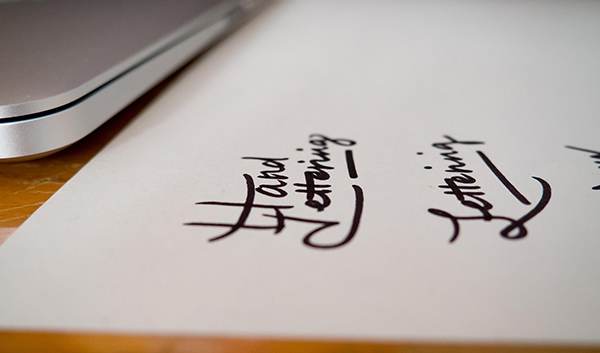 Hand
Lettering
Lettering